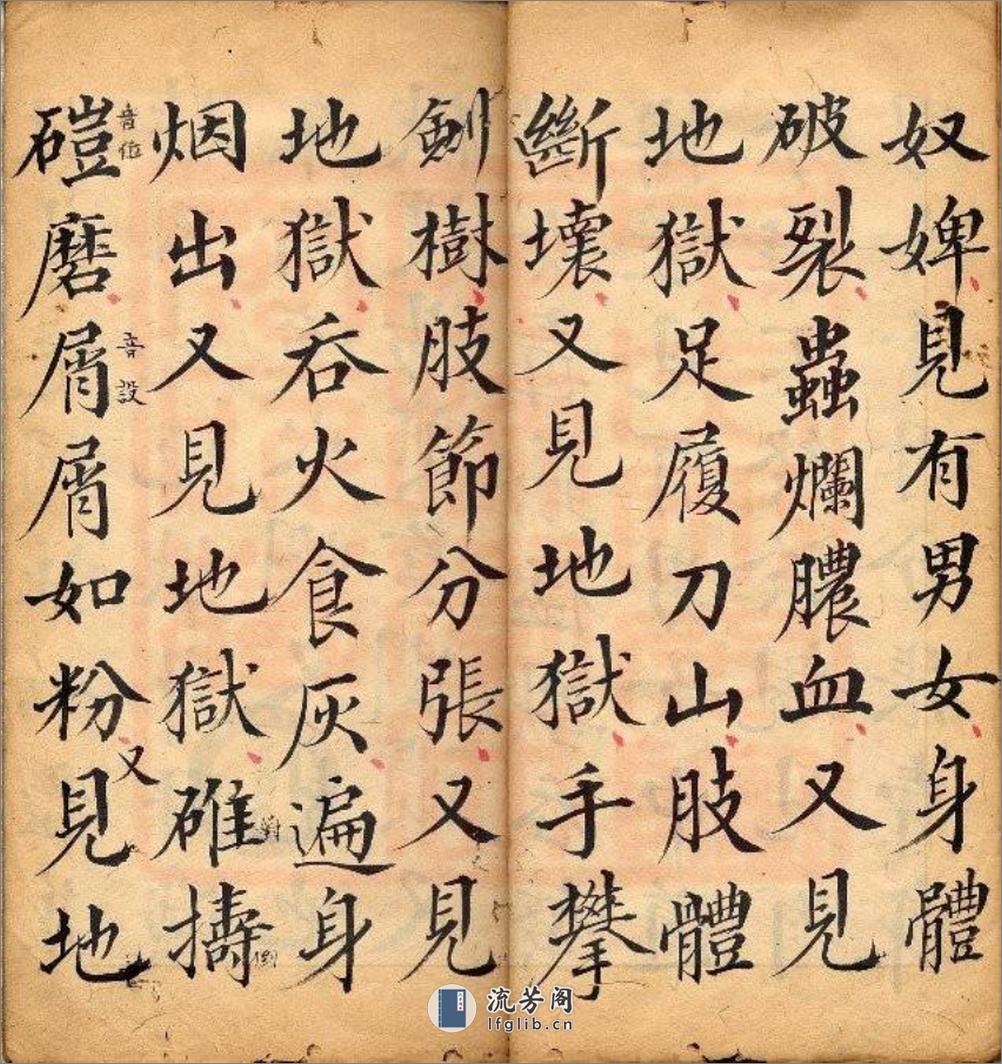 奴婢見有男女身體
破裂蟲爛膿血又見
地獄足履刀山肢體
斷壞又見地獄手攀
劍樹肢節分張又見
地獄吞火食灰遍身
烟出又見地獄碓擣
磑磨屑屑如粉又見地
音設
流芳阁
lfglib.cn